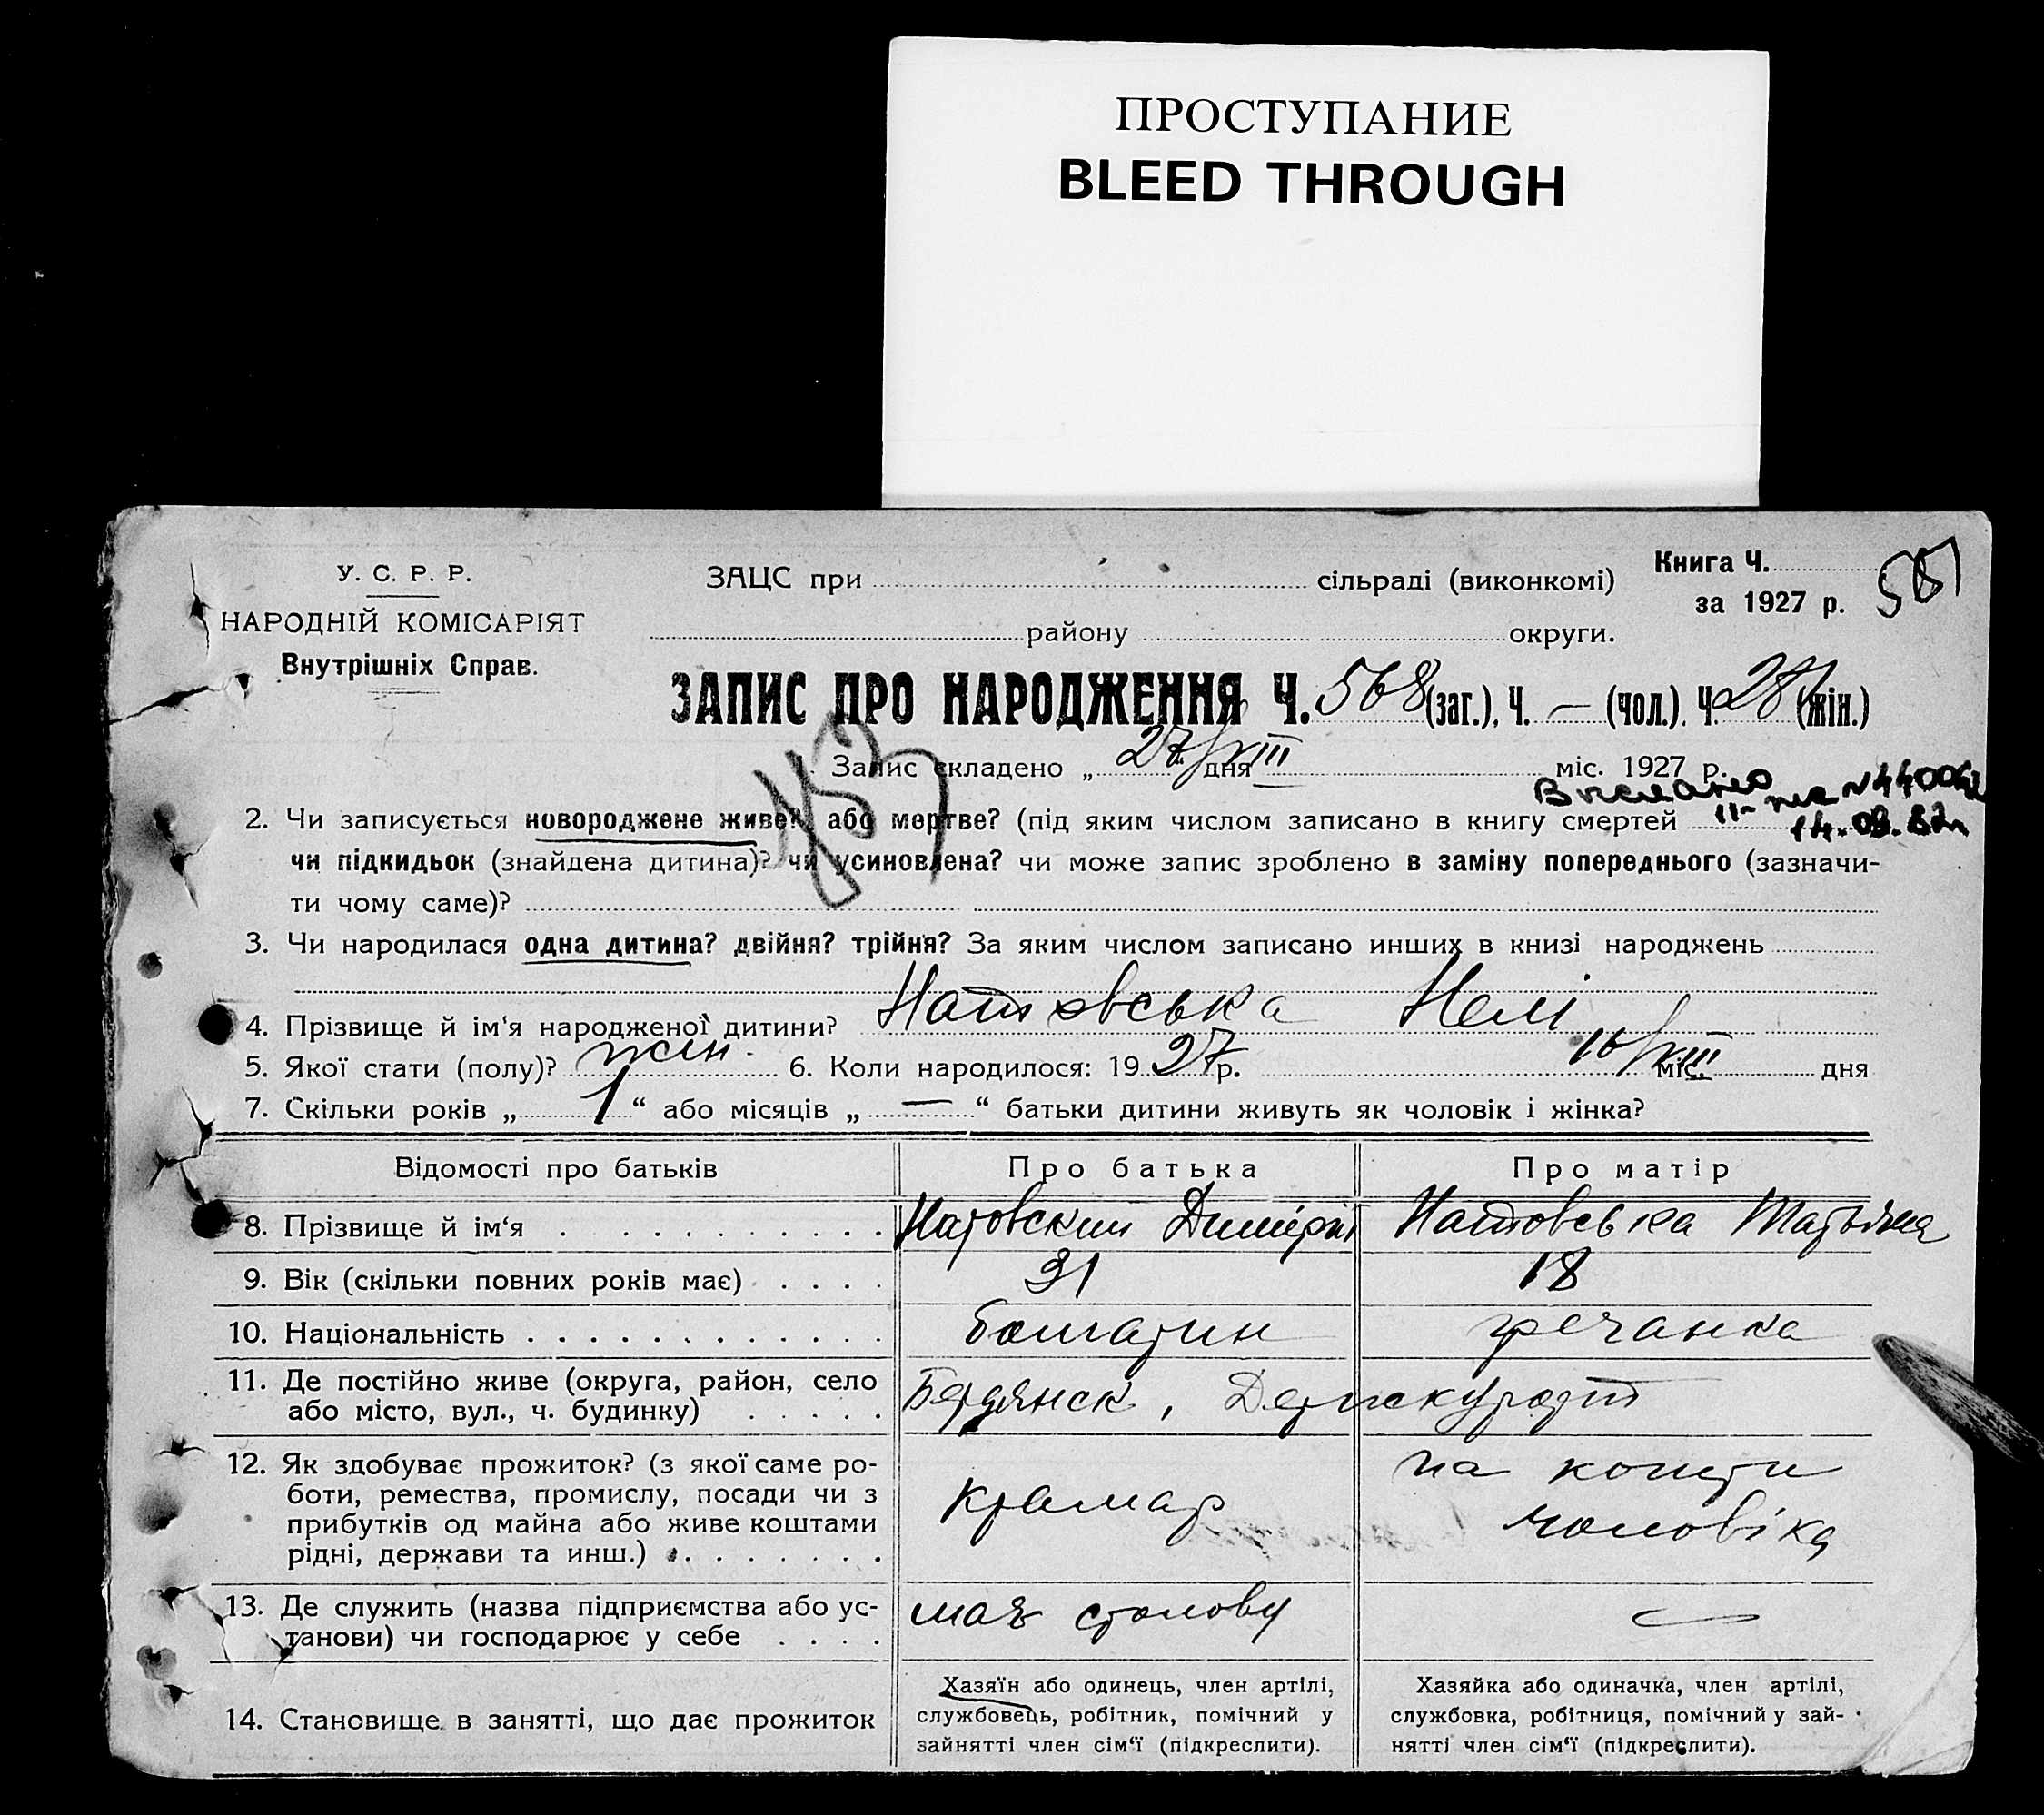 ПРОСТУПАНИЕ
BLEED THROUGH
У. С. Р. Р.
НАРОДНІЙ КОМІСАРІЯТ
Внутрішніх Справ.
ЗАЦС при сільраді (виконкомі)
району округи.
Книга Ч.
за 1927 р.
ЗАПИС ПРО НАРОДЖЕННЯ Ч. 568 (заг.), Ч. — (чол.), Ч. (жін.)
Запис складено „ 27/VIII дня міс. 1927 р.
Выслано
14.08.82
2. Чи записується новороджене живе? або мертве? (під яким числом записано в книгу смертей
чи підкидьок (знайдена дитина)? чи усиновлена? чи може запис зроблено в заміну попереднього (зазначи-
ти чому саме)?
3. Чи народилася одна дитина? двійня? трійня? За яким числом записано инших в книзі народжень
4. Прізвище й ім'я народженої дитини? Натовська Нелі
5. Якої стати (полу)? жін. 6. Коли народилося: 1927 р. міс. дня
7. Скільки років „ 1 “ або місяців „ — “ батьки дитини живуть як чоловік і жінка?
Відомості про батьків Про батька Про матір
8. Прізвище й ім'я Натовский Димітрій Натовська Татьяна
9. Вік (скільки повних років має) 31 18
10. Національність болгарин гречанка
11. Де постійно живе (округа, район, село
або місто, вул., ч. будинку)
Бердянск, Держкурорт
12. Як здобуває прожиток? (з якої саме ро-
боти, ремества, промислу, посади чи з
прибутків од майна або живе коштами
рідні, держави та инш.)
крамар
на кошти
чоловіка
13. Де служить (назва підприємства або ус-
танови) чи господарює у себе
має столову —
14. Становище в занятті, що дає прожиток
Хазяїн або одинець, член артілі,
службовець, робітник, помічний у
зайнятті член сім'ї (підкреслити).
Хазяйка або одиначка, член артілі,
службовка, робітниця, помічний у зай-
нятті член сім'ї (підкреслити).